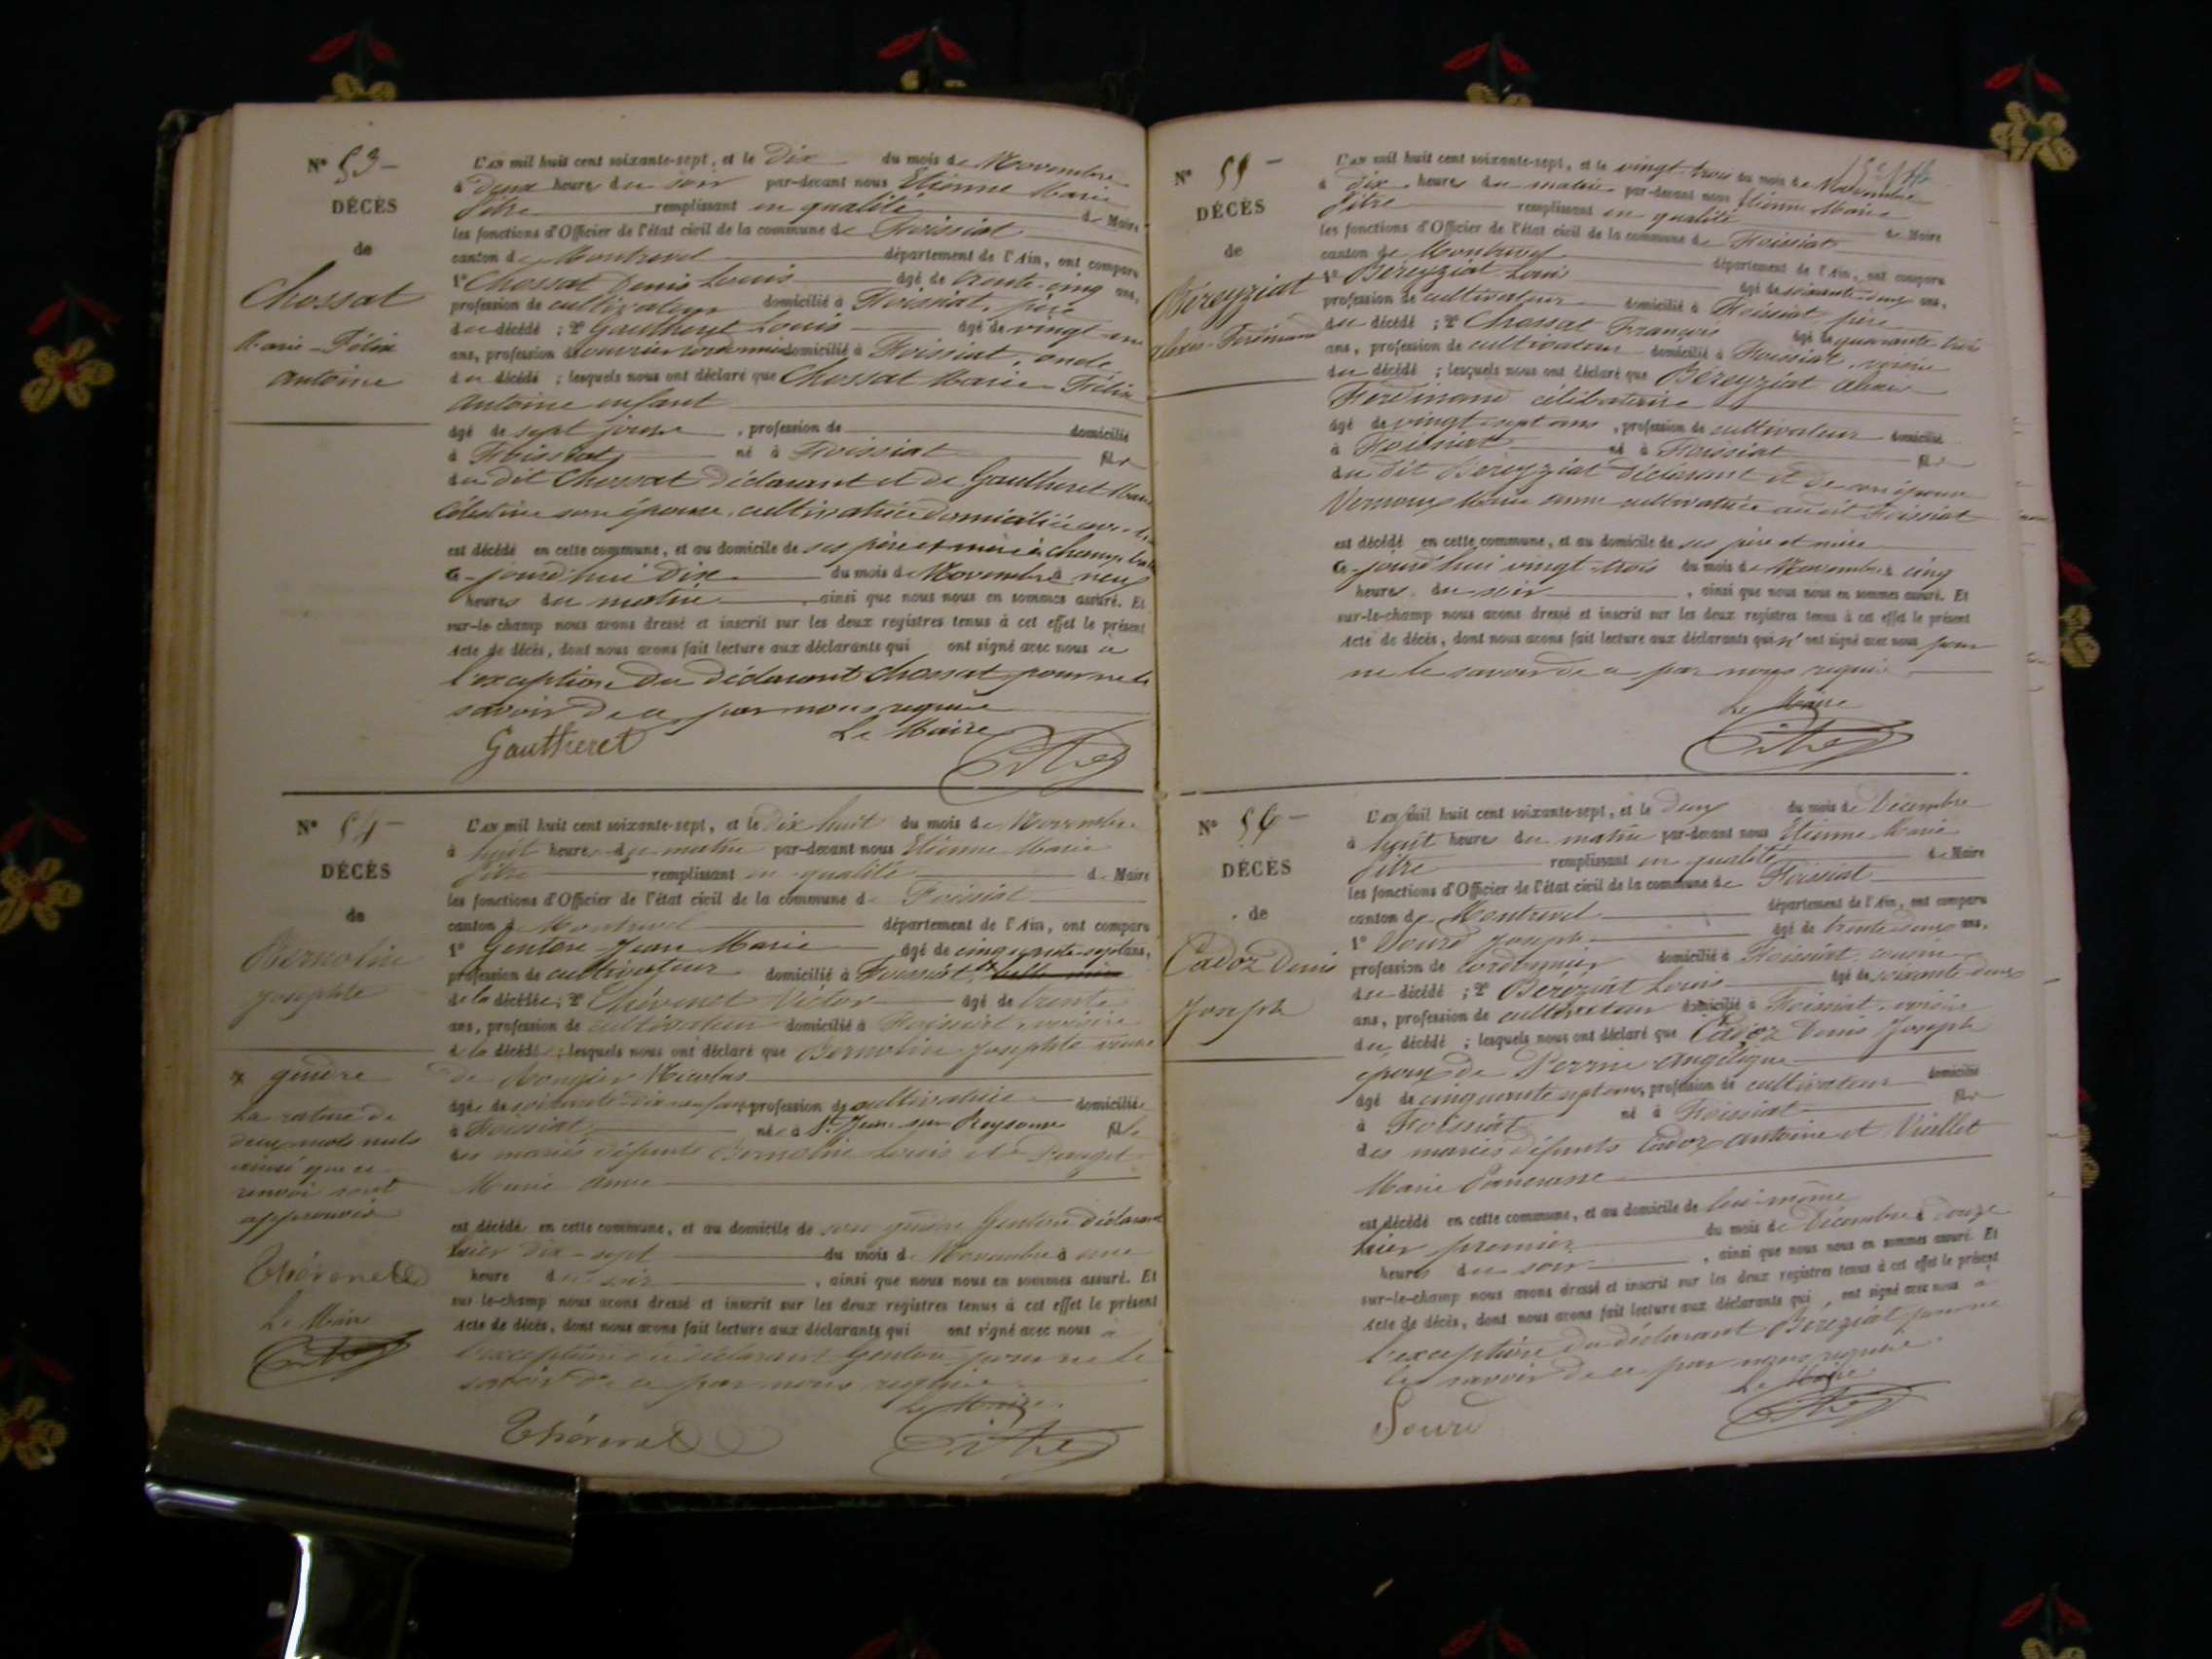 N° 53 -
DÉCÈS
de
Chossat
Marie - Félix
Antoine
L'an mil huit cent soixante-sept, et le Dix du mois de Novembre
à Deux heures du soir par-devant nous Etienne Marie
Pitre remplissant en qualité de Maire
les fonctions d'Officier de l'état civil de la commune de Foissiat
canton de Montrevel département de l'Ain, ont comparu
1° Chossat Denis Louis âgé de trente-cinq ans,
profession de cultivateur domicilié à Foissiat, père
du décédé ; 2° Gautheret Louis âgé de vingt un
ans, profession de ouvrier cordonnier domicilié à Foissiat, oncle
du décédé ; lesquels nous ont déclaré que Chossat Marie Félix
Antoine enfant
âgé de sept jours, profession de domicilié
à Foissiat né à Foissiat fils
du dit Chossat déclarant et de Gautheret Marie
Célestine son épouse, cultivatrice domiciliée avec lui
est décédé en cette commune, et au domicile de ses père et mère à
ce-jourd'hui Dix du mois de Novembre à neuf
heures du matin, ainsi que nous nous en sommes assuré. Et
sur-le-champ nous avons dressé et inscrit sur les deux registres tenus à cet effet le présent
Acte de décès, dont nous avons fait lecture aux déclarants qui ont signé avec nous à
l'exception du déclarant Chossat pour ne le
savoir de ce par nous requis
Gautheret Le Maire
Pitre
N° 54 -
DÉCÈS
de
Bernolin
Josephte
x gendre
La rature de
deux mots nuls
ainsi que ce
renvoi sont
approuvés
Thévenet
Le Maire
Pitre
L'an mil huit cent soixante-sept, et le Dix huit du mois de Novembre
à huit heures du matin par-devant nous Etienne Marie
Pitre remplissant en qualité de Maire
les fonctions d'Officier de l'état civil de la commune de Foissiat
canton de Montrevel département de l'Ain, ont comparu
1° Genton Jean Marie âgé de cinquante-sept ans,
profession de cultivateur domicilié à Foissiat x
de la décédée ; 2° Thévenet Victor âgé de trente
ans, profession de cultivateur domicilié à Foissiat, voisin
de la décédée ; lesquels nous ont déclaré que Bernolin Josephte veuve
de Rougier Nicolas
âgée de soixante-dix-neuf ans, profession de cultivatrice domiciliée
à Foissiat née à St Jean sur Reyssouze fille
des mariés défunts Bernolin Louis et Panget
Marie Anne
est décédée en cette commune, et au domicile de son gendre Genton déclarant
hier dix-sept du mois de Novembre à une
heure du soir, ainsi que nous nous en sommes assuré. Et
sur-le-champ nous avons dressé et inscrit sur les deux registres tenus à cet effet le présent
Acte de décès, dont nous avons fait lecture aux déclarants qui ont signé avec nous à
l'exception du déclarant Genton pour ne le
savoir de ce par nous requis
Le Maire
Thévenet Pitre
N° 55 -
DÉCÈS
de
Béreyziat
Alexis-Ferdinand
L'an mil huit cent soixante-sept, et le vingt-trois du mois de Novembre
à dix heures du matin par-devant nous Etienne Marie
Pitre remplissant en qualité de Maire
les fonctions d'Officier de l'état civil de la commune de Foissiat
canton de Montrevel département de l'Ain, ont comparu
1° Béreyziat Louis âgé de soixante-deux ans,
profession de cultivateur domicilié à Foissiat père
du décédé ; 2° Chossat François âgé de quarante-trois
ans, profession de cultivateur domicilié à Foissiat, voisin
du décédé ; lesquels nous ont déclaré que Béreyziat Alexis
Ferdinand célibataire
âgé de vingt-sept ans, profession de cultivateur domicilié
à Foissiat né à Foissiat fils
du dit Béreyziat déclarant et de son épouse
Vernoux Marie Anne cultivatrice audit Foissiat
est décédé en cette commune, et au domicile de ses père et mère
ce-jourd'hui vingt-trois du mois de Novembre à cinq
heures du soir, ainsi que nous nous en sommes assuré. Et
sur-le-champ nous avons dressé et inscrit sur les deux registres tenus à cet effet le présent
Acte de décès, dont nous avons fait lecture aux déclarants qui n'ont signé avec nous pour
ne le savoir de ce par nous requis
Le Maire
Pitre
N° 56 -
DÉCÈS
de
Cadoz Denis
Joseph
L'an mil huit cent soixante-sept, et le deux du mois de Décembre
à huit heures du matin par-devant nous Etienne Marie
Pitre remplissant en qualité de Maire
les fonctions d'Officier de l'état civil de la commune de Foissiat
canton de Montrevel département de l'Ain, ont comparu
1° Sourd Joseph âgé de trente-deux ans,
profession de cordonnier domicilié à Foissiat, cousin
du décédé ; 2° Béréziat Louis âgé de soixante-deux
ans, profession de cultivateur domicilié à Foissiat, voisin
du décédé ; lesquels nous ont déclaré que Cadoz Denis Joseph
époux de Perrin Angélique
âgé de cinquante sept ans, profession de cultivateur domicilié
à Foissiat né à Foissiat fils
des mariés défunts Cadoz Antoine et Viallet
Marie Pancrasse
est décédé en cette commune, et au domicile de lui-même
hier premier du mois de Décembre à douze
heures du soir, ainsi que nous nous en sommes assuré. Et
sur-le-champ nous avons dressé et inscrit sur les deux registres tenus à cet effet le présent
Acte de décès, dont nous avons fait lecture aux déclarants qui ont signé avec nous à
l'exception du déclarant Béréziat pour ne
le savoir de ce par nous requis
Le Maire
Sourd Pitre